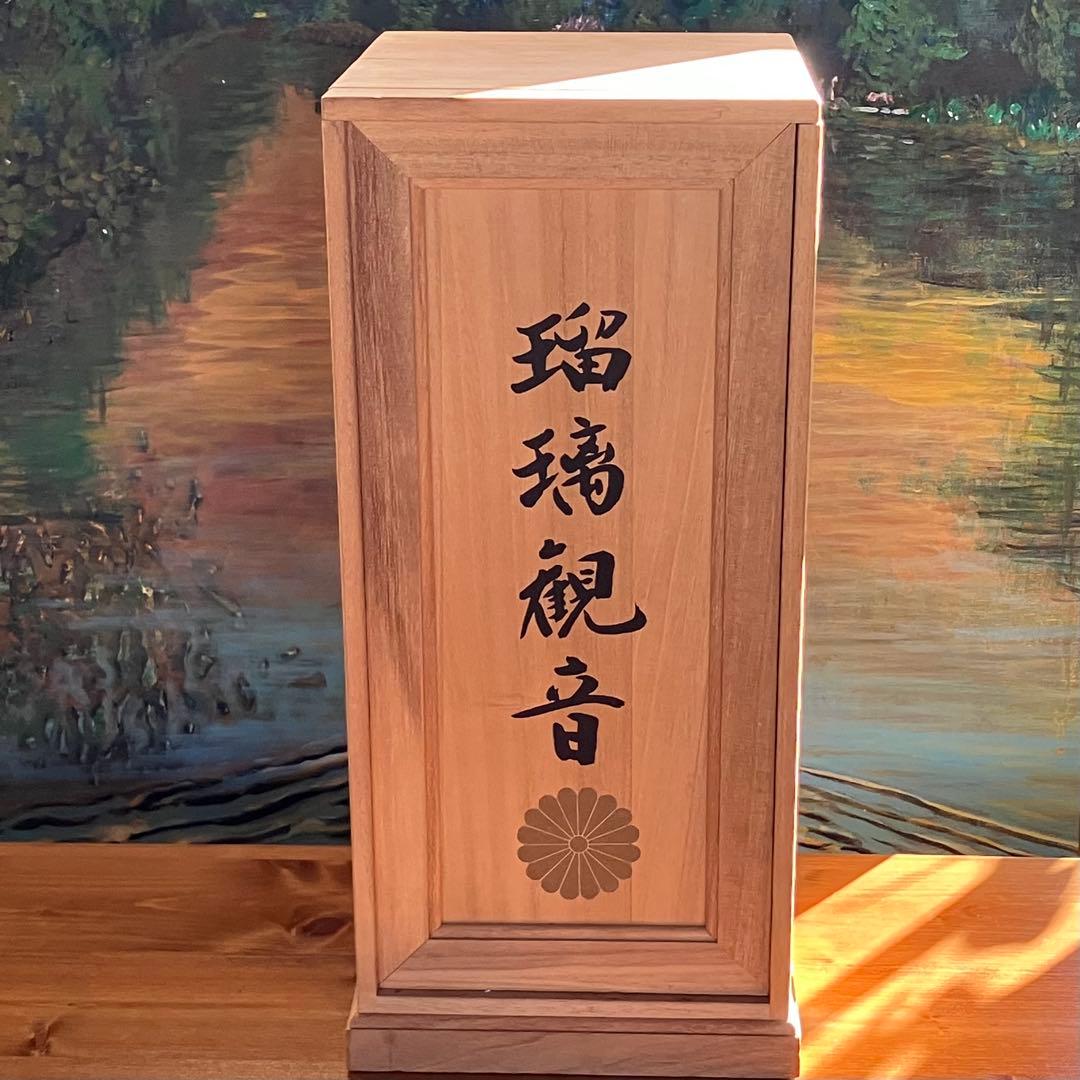 瑠璃観音